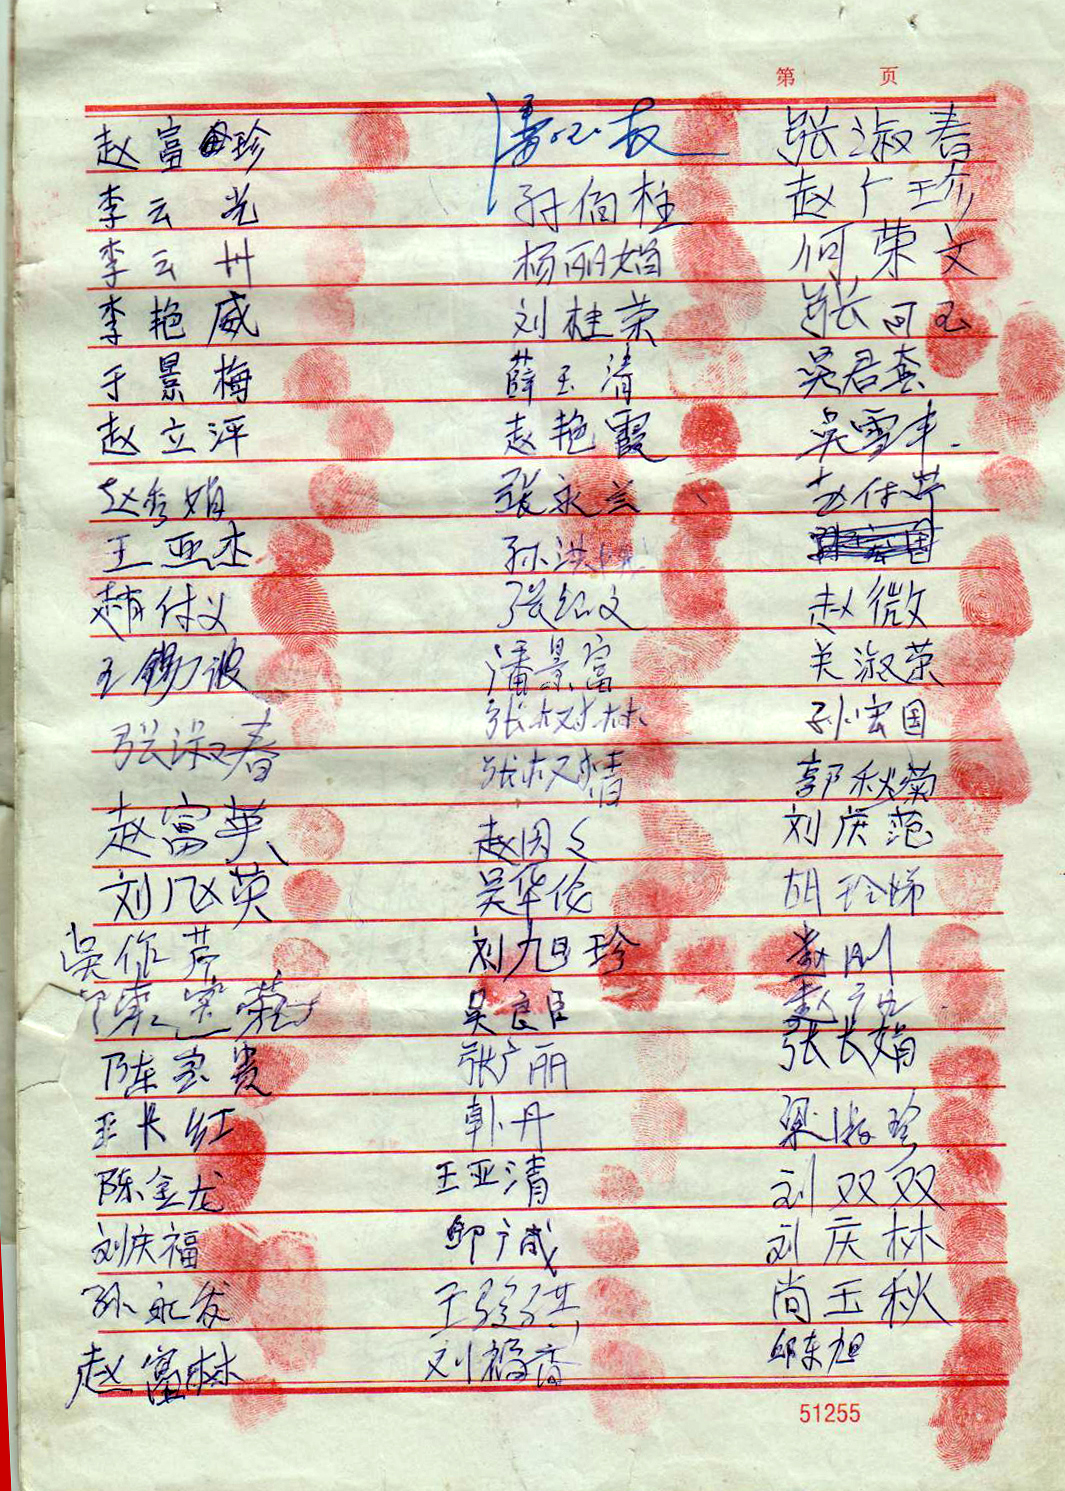 第 页
赵富珍 张淑春
李云光 孙伯柱 赵广珍
李云州 杨丽娟 何荣文
李艳威 刘桂荣 张向玉
于景梅 薛玉清 吴君奎
赵立萍 赵艳霞 吴雪丰
赵秀娟 张永兰 赵付芹
王亚杰 孙洪
付义 张纪文 赵微
王锡波 潘景富 关淑荣
张淑春 张树林 孙宏国
张树清 郭秋菊
赵富英 赵国文 刘庆范
刘凡英 吴华伦 胡玲娣
吴作芹 刘旭珍 赵刚
吴良臣 赵广
陈宝贵 张广丽 张长娟
王长红 韩丹 梁淑珍
陈金龙 王亚清 刘双双
刘庆福 邹广成 刘庆林
孙永发 王 尚玉秋
赵富林 刘福香 邱东旭
51255